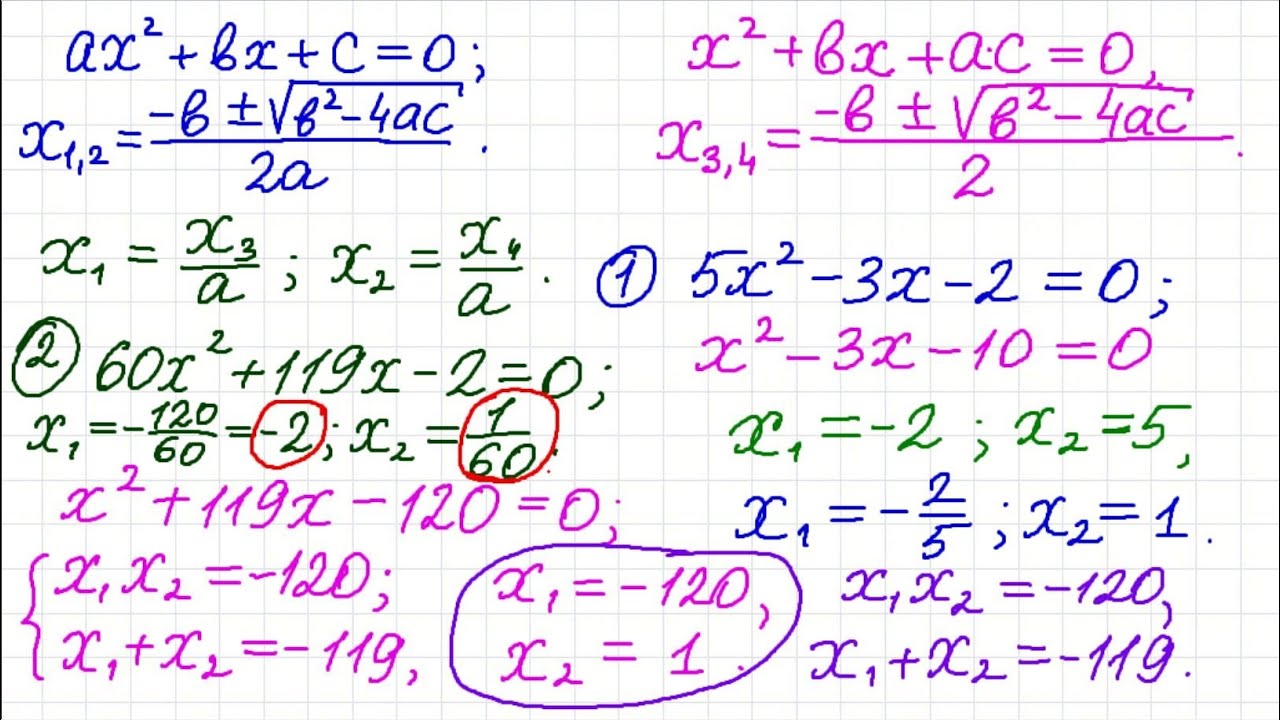 ax² + вx + c = 0;
x₁,₂ = (-в ± √(в² - 4ac)) / 2a .
x² + вx + a·c = 0,
x₃,₄ = (-в ± √(в² - 4ac)) / 2 .
x₁ = x₃/a ; x₂ = x₄/a .
① 5x² - 3x - 2 = 0;
x² - 3x - 10 = 0
x₁ = -2 ; x₂ = 5,
x₁ = -2/5 ; x₂ = 1.
② 60x² + 119x - 2 = 0;
x₁ = -120/60 = -2; x₂ = 1/60.
x² + 119x - 120 = 0;
{ x₁x₂ = -120;
x₁ + x₂ = -119,
x₁ = -120,
x₂ = 1.
x₁x₂ = -120,
x₁ + x₂ = -119.